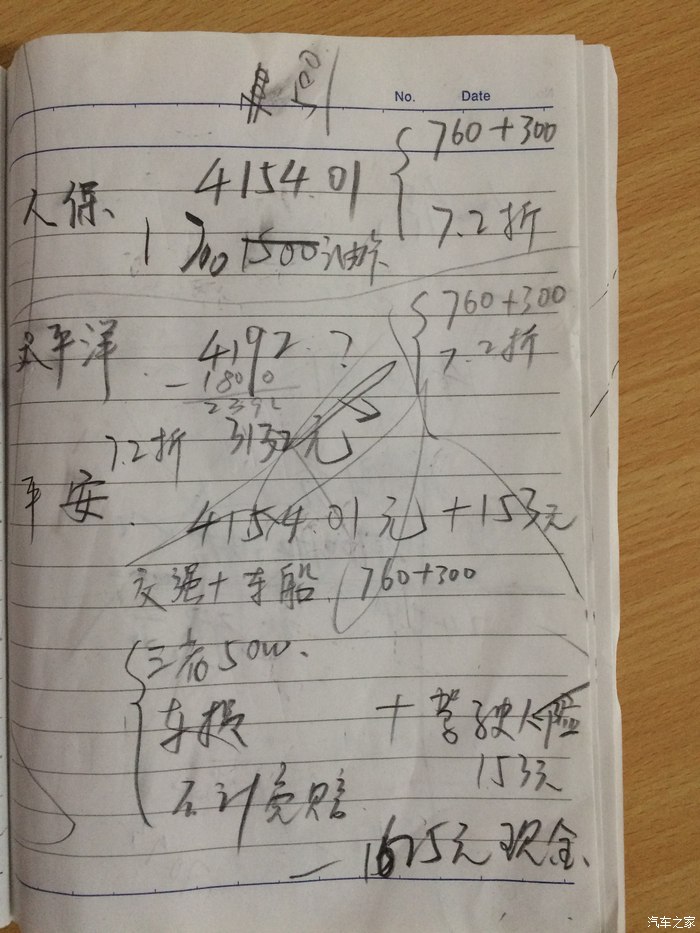 No. Date
500
人保 4154.01 { 760+300
7.2折
1700 1500油卡
太平洋 4192.? { 760+300
7.2折
-1800
2392
7.2折 3132元
平安 4154.01元+153元
交强+车船 760+300
三者50w.
车损 + 驾驶人险
153元
不计免赔
-1625元现金
汽车之家